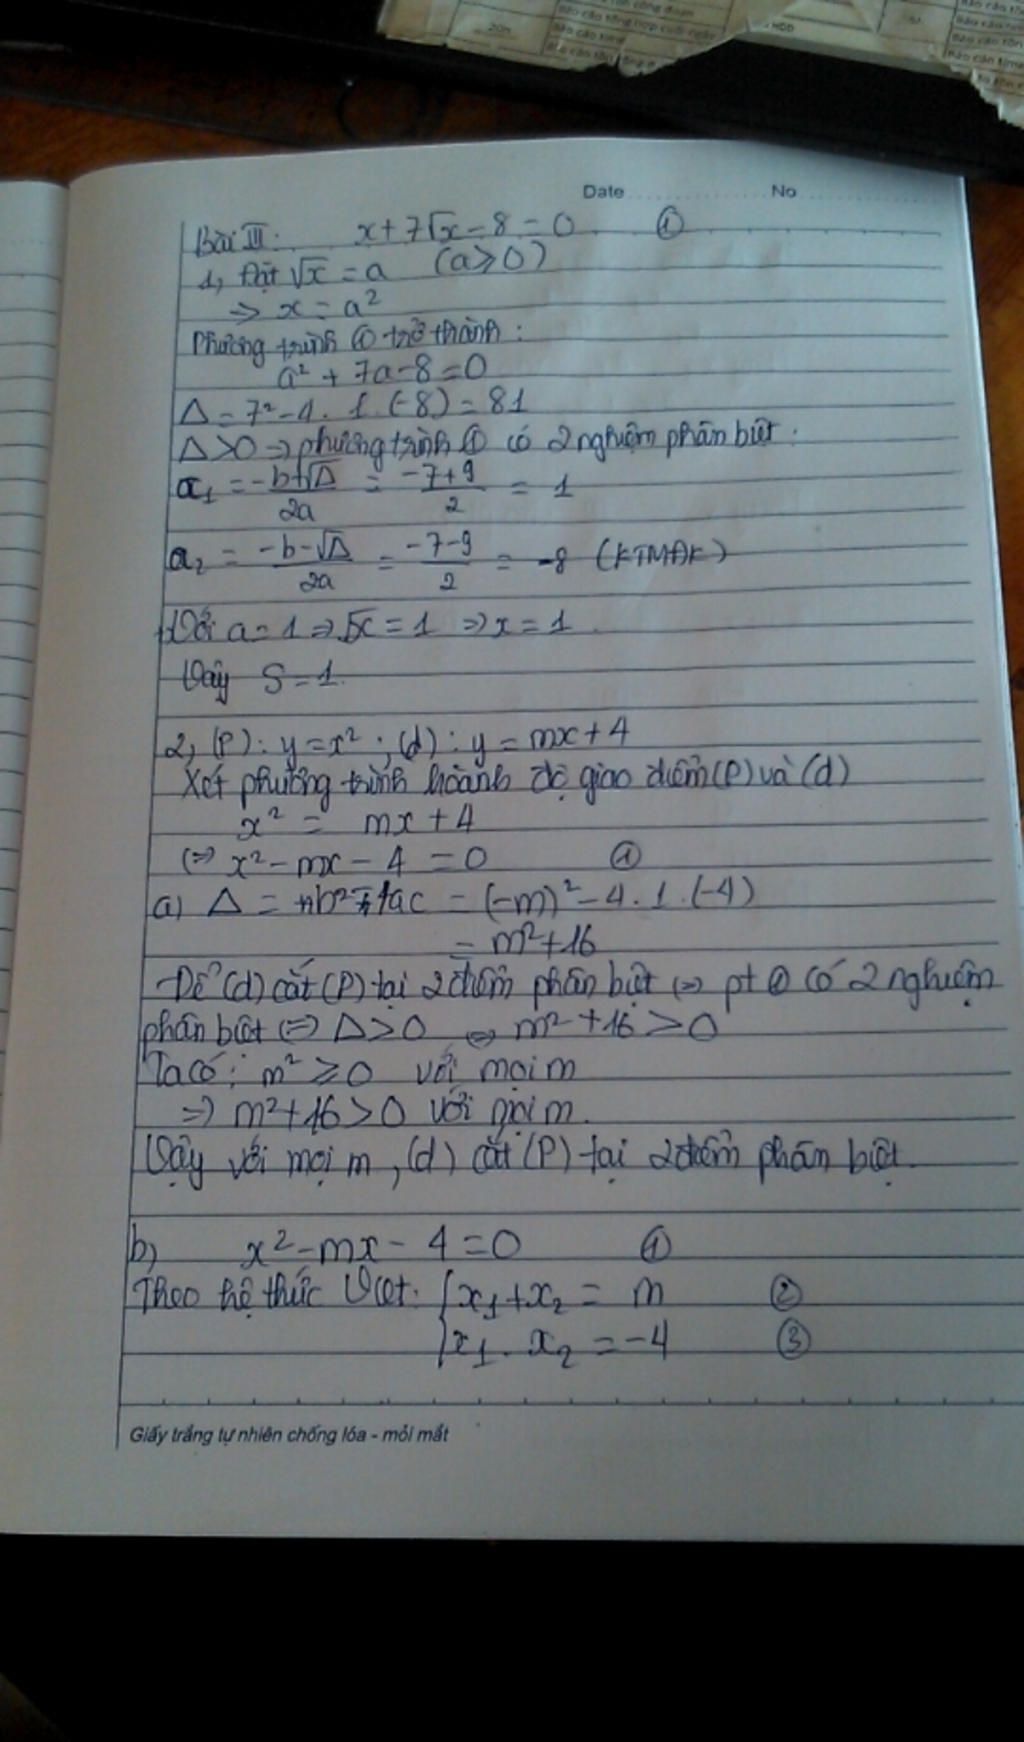 Báo cáo tổng hợp cuối ngày
Báo cáo time
HDD
Date No
Bài III: x + 7√x - 8 = 0 ①
1, Đặt √x = a (a ≥ 0)
=> x = a²
Phương trình ① trở thành:
a² + 7a - 8 = 0
Δ = 7² - 4 . 1 . (-8) = 81
Δ > 0 => phương trình ① có 2 nghiệm phân biệt:
a₁ = -b+√Δ / 2a = -7+9 / 2 = 1
a₂ = -b-√Δ / 2a = -7-9 / 2 = -8 (KTMĐK)
+Với a = 1 => √x = 1 => x = 1
Vậy S = 1.
2, (P): y = x² ; (d): y = mx + 4
Xét phương trình hoành độ giao điểm (P) và (d)
x² = mx + 4
(=> x² - mx - 4 = 0 ①
a) Δ = b² - 4ac = (-m)² - 4 . 1 . (-4)
= m² + 16
Để (d) cắt (P) tại 2 điểm phân biệt (=> pt ① có 2 nghiệm
phân biệt (=> Δ > 0 <=> m² + 16 > 0
Ta có: m² ≥ 0 với mọi m
=> m² + 16 > 0 với mọi m.
Vậy với mọi m, (d) cắt (P) tại 2 điểm phân biệt.
b) x² - mx - 4 = 0 ①
Theo hệ thức Viet: { x₁ + x₂ = m ②
x₁ . x₂ = -4 ③
Giấy trắng tự nhiên chống lóa - mỏi mắt